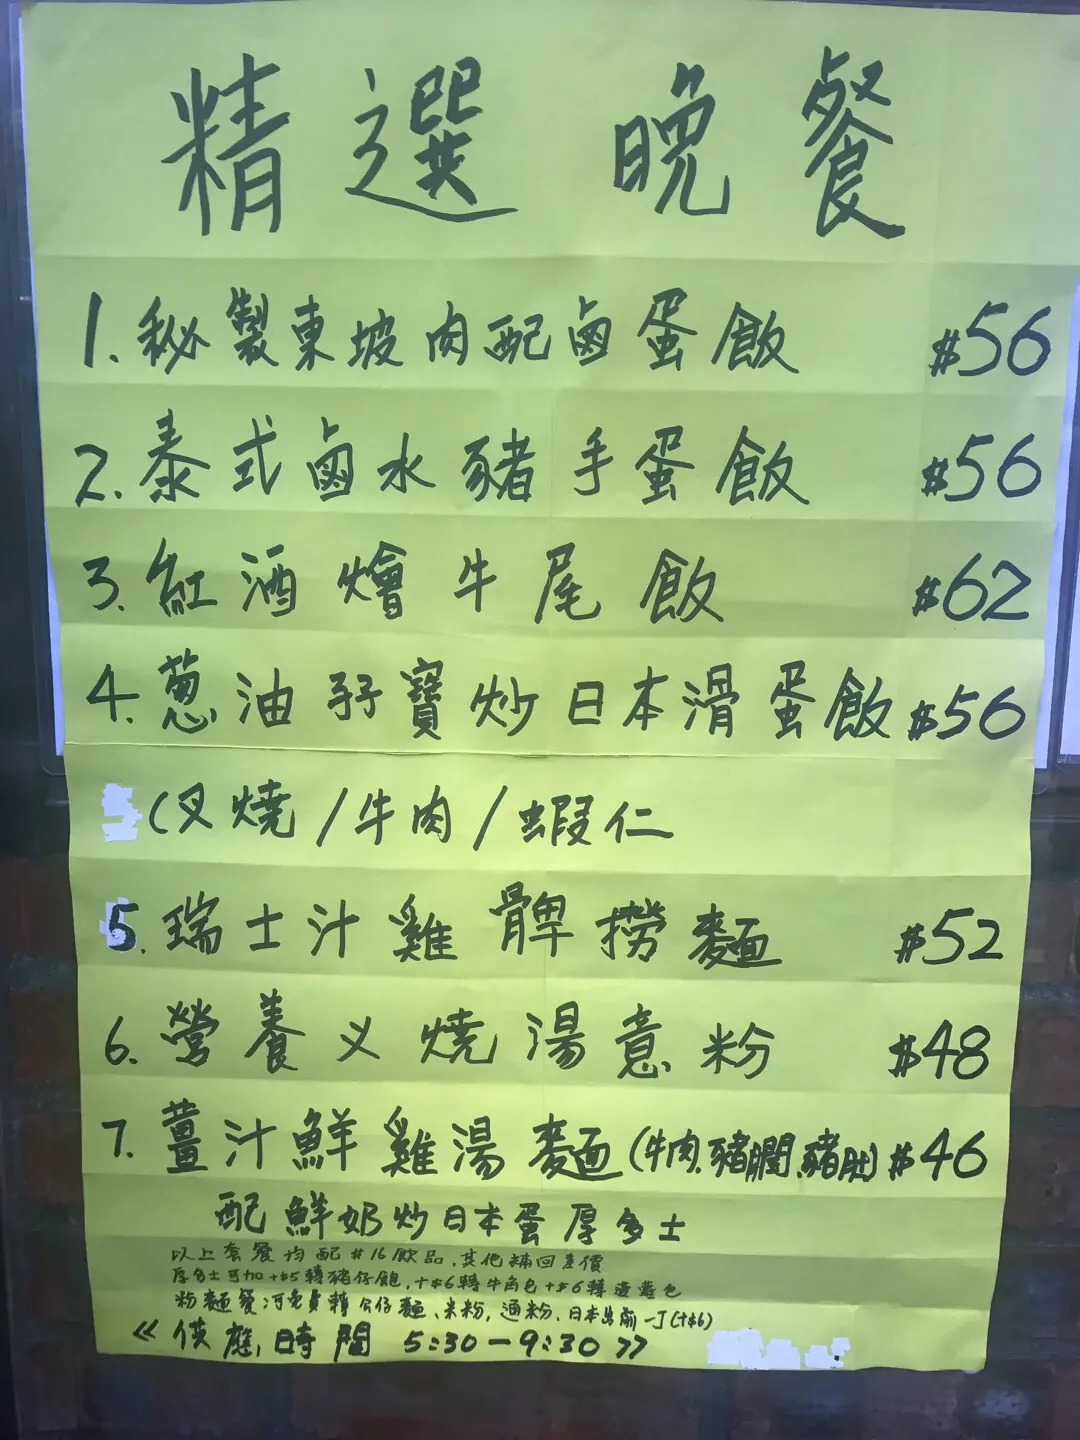 精選晚餐
1. 秘製東坡肉配鹵蛋飯 $56
2. 泰式鹵水豬手蛋飯 $56
3. 紅酒燴牛尾飯 $62
4. 蔥油孖寶炒日本滑蛋飯 $56
(叉燒/牛肉/蝦仁
5. 瑞士汁雞髀撈麵 $52
6. 營養叉燒湯意粉 $48
7. 薑汁鮮雞湯麵(牛肉.豬膶.豬肚) $46
配鮮奶炒日本蛋厚多士
以上套餐均配#16飲品,其他補回差價
厚多士可加+$5轉豬仔飽,+$6轉牛角包+$6轉 包
粉麵餐可免費轉公仔麵、米粉,通粉、日本出前一丁(+$6)
<<供應時間 5:30-9:30>>